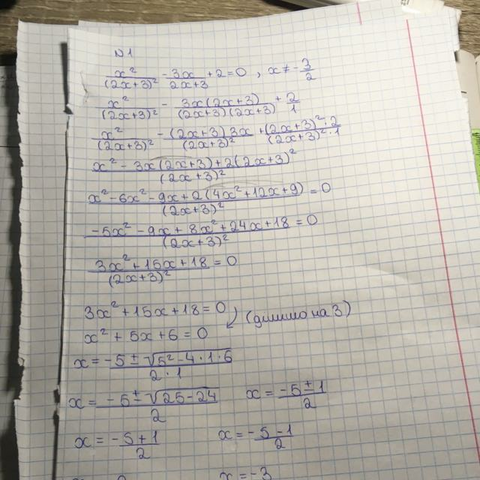 N1
x²/(2x+3)² - 3x/2x+3 + 2 = 0 , x ≠ -3/2
x²/(2x+3)² - 3x(2x+3)/(2x+3)(2x+3) + 2/1
x²/(2x+3)² - (2x+3)3x/(2x+3)² + (2x+3)²·2/(2x+3)²·1
x² - 3x(2x+3) + 2(2x+3)²/(2x+3)²
x² - 6x² - 9x + 2(4x² + 12x + 9)/(2x+3)² = 0
-5x² - 9x + 8x² + 24x + 18/(2x+3)² = 0
3x² + 15x + 18/(2x+3)² = 0
3x² + 15x + 18 = 0
(ділимо на 3)
x² + 5x + 6 = 0
x = -5 ± √5² - 4·1·6/2·1
x = -5 ± √25 - 24/2 x = -5 ± 1/2
x = -5 + 1/2 x = -5 - 1/2
x = -3